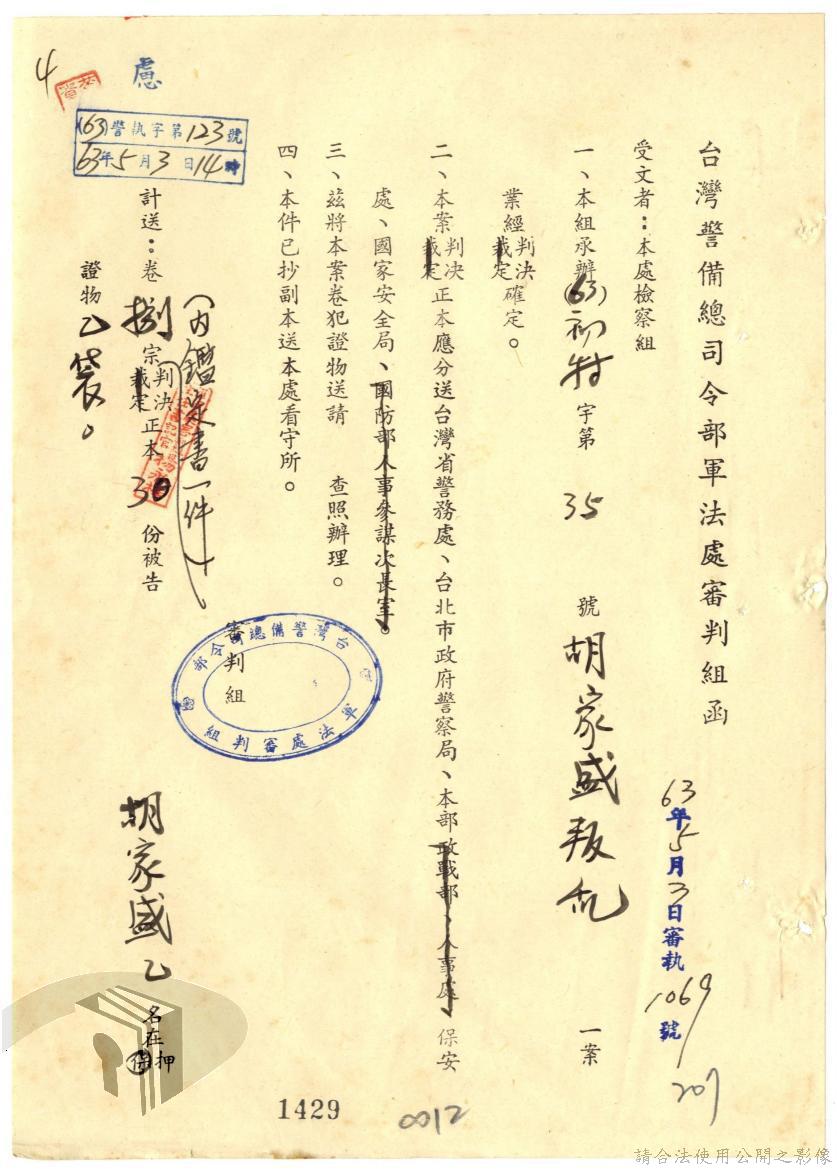 台灣警備總司令部軍法處審判組函
63年5月3日審執1069號
207
受文者：本處檢察組
一、本組承辦(63)初特字第35號胡家盛叛亂一案
業經判決裁定確定。
二、本案判決裁定正本應分送台灣省警務處、台北市政府警察局、本部政戰部、人事處、保安
處、國家安全局、國防部人事參謀次長室。
三、茲將本案卷犯證物送請 查照辦理。
四、本件已抄副本送本處看守所。
審判組
台灣警備總司令部
軍法處審判組
(內鑑定書一件)
計送：卷捌宗判決裁定正本30份被告胡家盛乙名在押保
證物乙袋。
(63)警執字第123號
63年5月3日14時
慮
4
1429
0012
請合法使用公開之影像